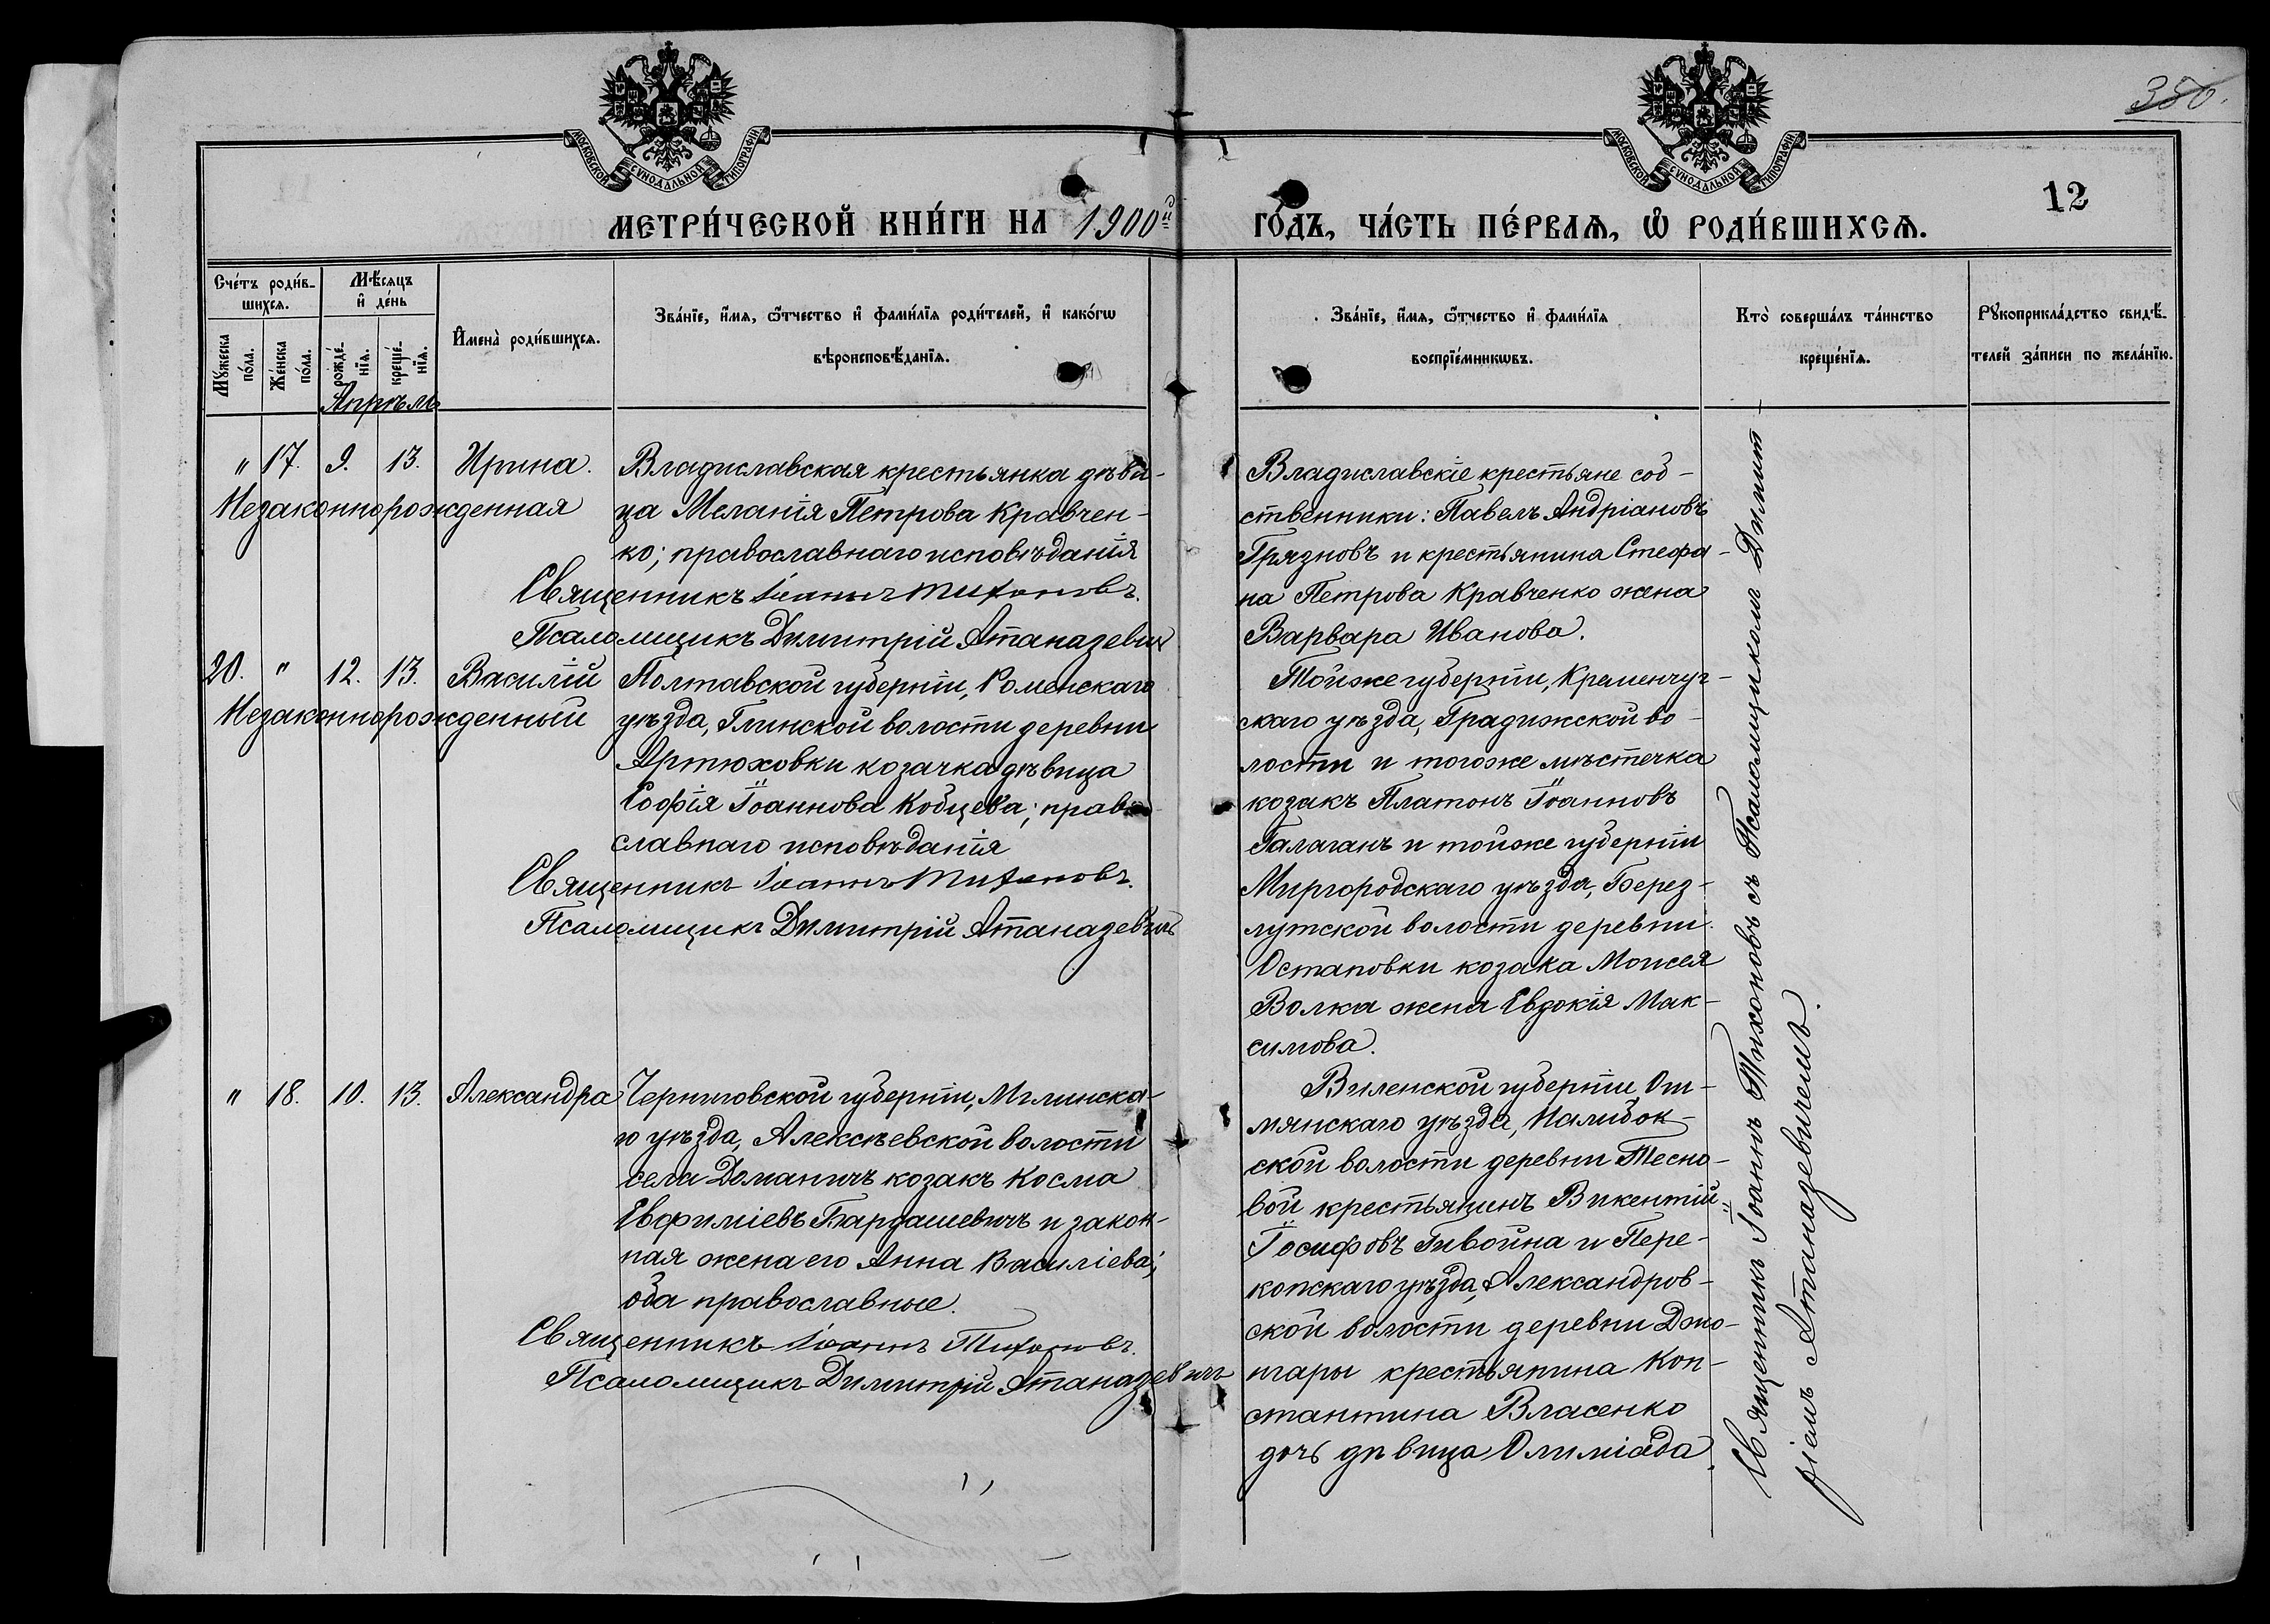 350.
МОСКОВСКОЙ СѴНОДАЛЬНОЙ ТИПОГРАФІИ
МОСКОВСКОЙ СѴНОДАЛЬНОЙ ТИПОГРАФІИ
12
МЕТРИ́ЧЕСКОЙ КНИ́ГИ НА 1900й
ГО́ДЪ, ЧА́СТЬ ПЕ́РВАѦ, Ѡ҆ РОДИ́ВШИХСѦ.
Сче́тъ роди́в-
шихсѧ.
Мꙋ́жеска по́ла.
Же́нска по́ла.
Мѣ́сѧцъ
и҆ де́нь
рожде́-
нїѧ.
креще́-
нїѧ.
Апрѣль
И҆мена̀ роди́вшихсѧ.
Зва́нїе, и҆́мѧ, ѻ҆́тчество и҆ фами́лїѧ роди́телей, и҆ како́гѡ
вѣроисповѣ́данїѧ.
Зва́нїе, и҆́мѧ, ѻ҆́тчество и҆ фами́лїѧ
воспрїе́мникѡвъ.
Кто̀ соверша́лъ та́инство
креще́нїѧ.
Рꙋкоприкла́дство свидѣ́-
телей за́писи по жела́нїю.
" 17. 9. 13. Ирина.
Незаконнорожденная
Владиславская крестьянка дѣви-
ца Меланія Петрова Кравчен-
ко; православнаго исповѣданія
Священникъ Іоаннъ Тихоновъ.
Псаломщикъ Димитрій Атаназевич
Владиславскіе крестьяне соб-
ственники: Павелъ Андріановъ
Грязновъ и крестьянина Стефа-
на Петрова Кравченко жена
Варвара Иванова.
20. " 12. 13. Василій
Незаконнорожденный
Полтавской губерніи, Роменскаго
уѣзда, Глинской волости деревни
Артюховки козачка дѣвица
Софія Іоаннова Кобцева; право
славнаго исповѣданія
Священникъ Іоаннъ Тихоновъ.
Псаломщикъ Димитрій Атаназевичъ
Тойже губерніи, Кременчуг-
скаго уѣзда, Градижской во-
лости и тогоже мѣстечка
козакъ Платонъ Іоанновъ
Галаганъ и тойже губерніи
Миргородскаго уѣзда, Берез-
лутской волости деревни
Остаповки козака Моисея
Волка жена Евдокія Мак-
симова.
" 18. 10. 13. Александра
Черниговской губерніи, Мглинска-
го уѣзда, Алексѣевской волости
села Доманичъ козакъ Косма
Евфиміевъ Бардашевичъ и закон-
ная жена его Анна Василіева;
оба православные.
Священникъ Іоаннъ Тихоновъ.
Псаломщикъ Димитрій Атаназевичъ
Виленской губерніи, Ош-
мянскаго уѣзда, Налибок-
ской волости деревни Тесно-
вой крестьянинъ Викентій
Іосифовъ Гивойна и Пере-
копскаго уѣзда, Александров-
ской волости деревни Джо-
нгары крестьянина Кон-
стантина Власенко
дочь дѣвица Олимпіада.
Священникъ Іоаннъ Тихоновъ съ Псаломщикомъ Димит-
ріемъ Атаназевичемъ.